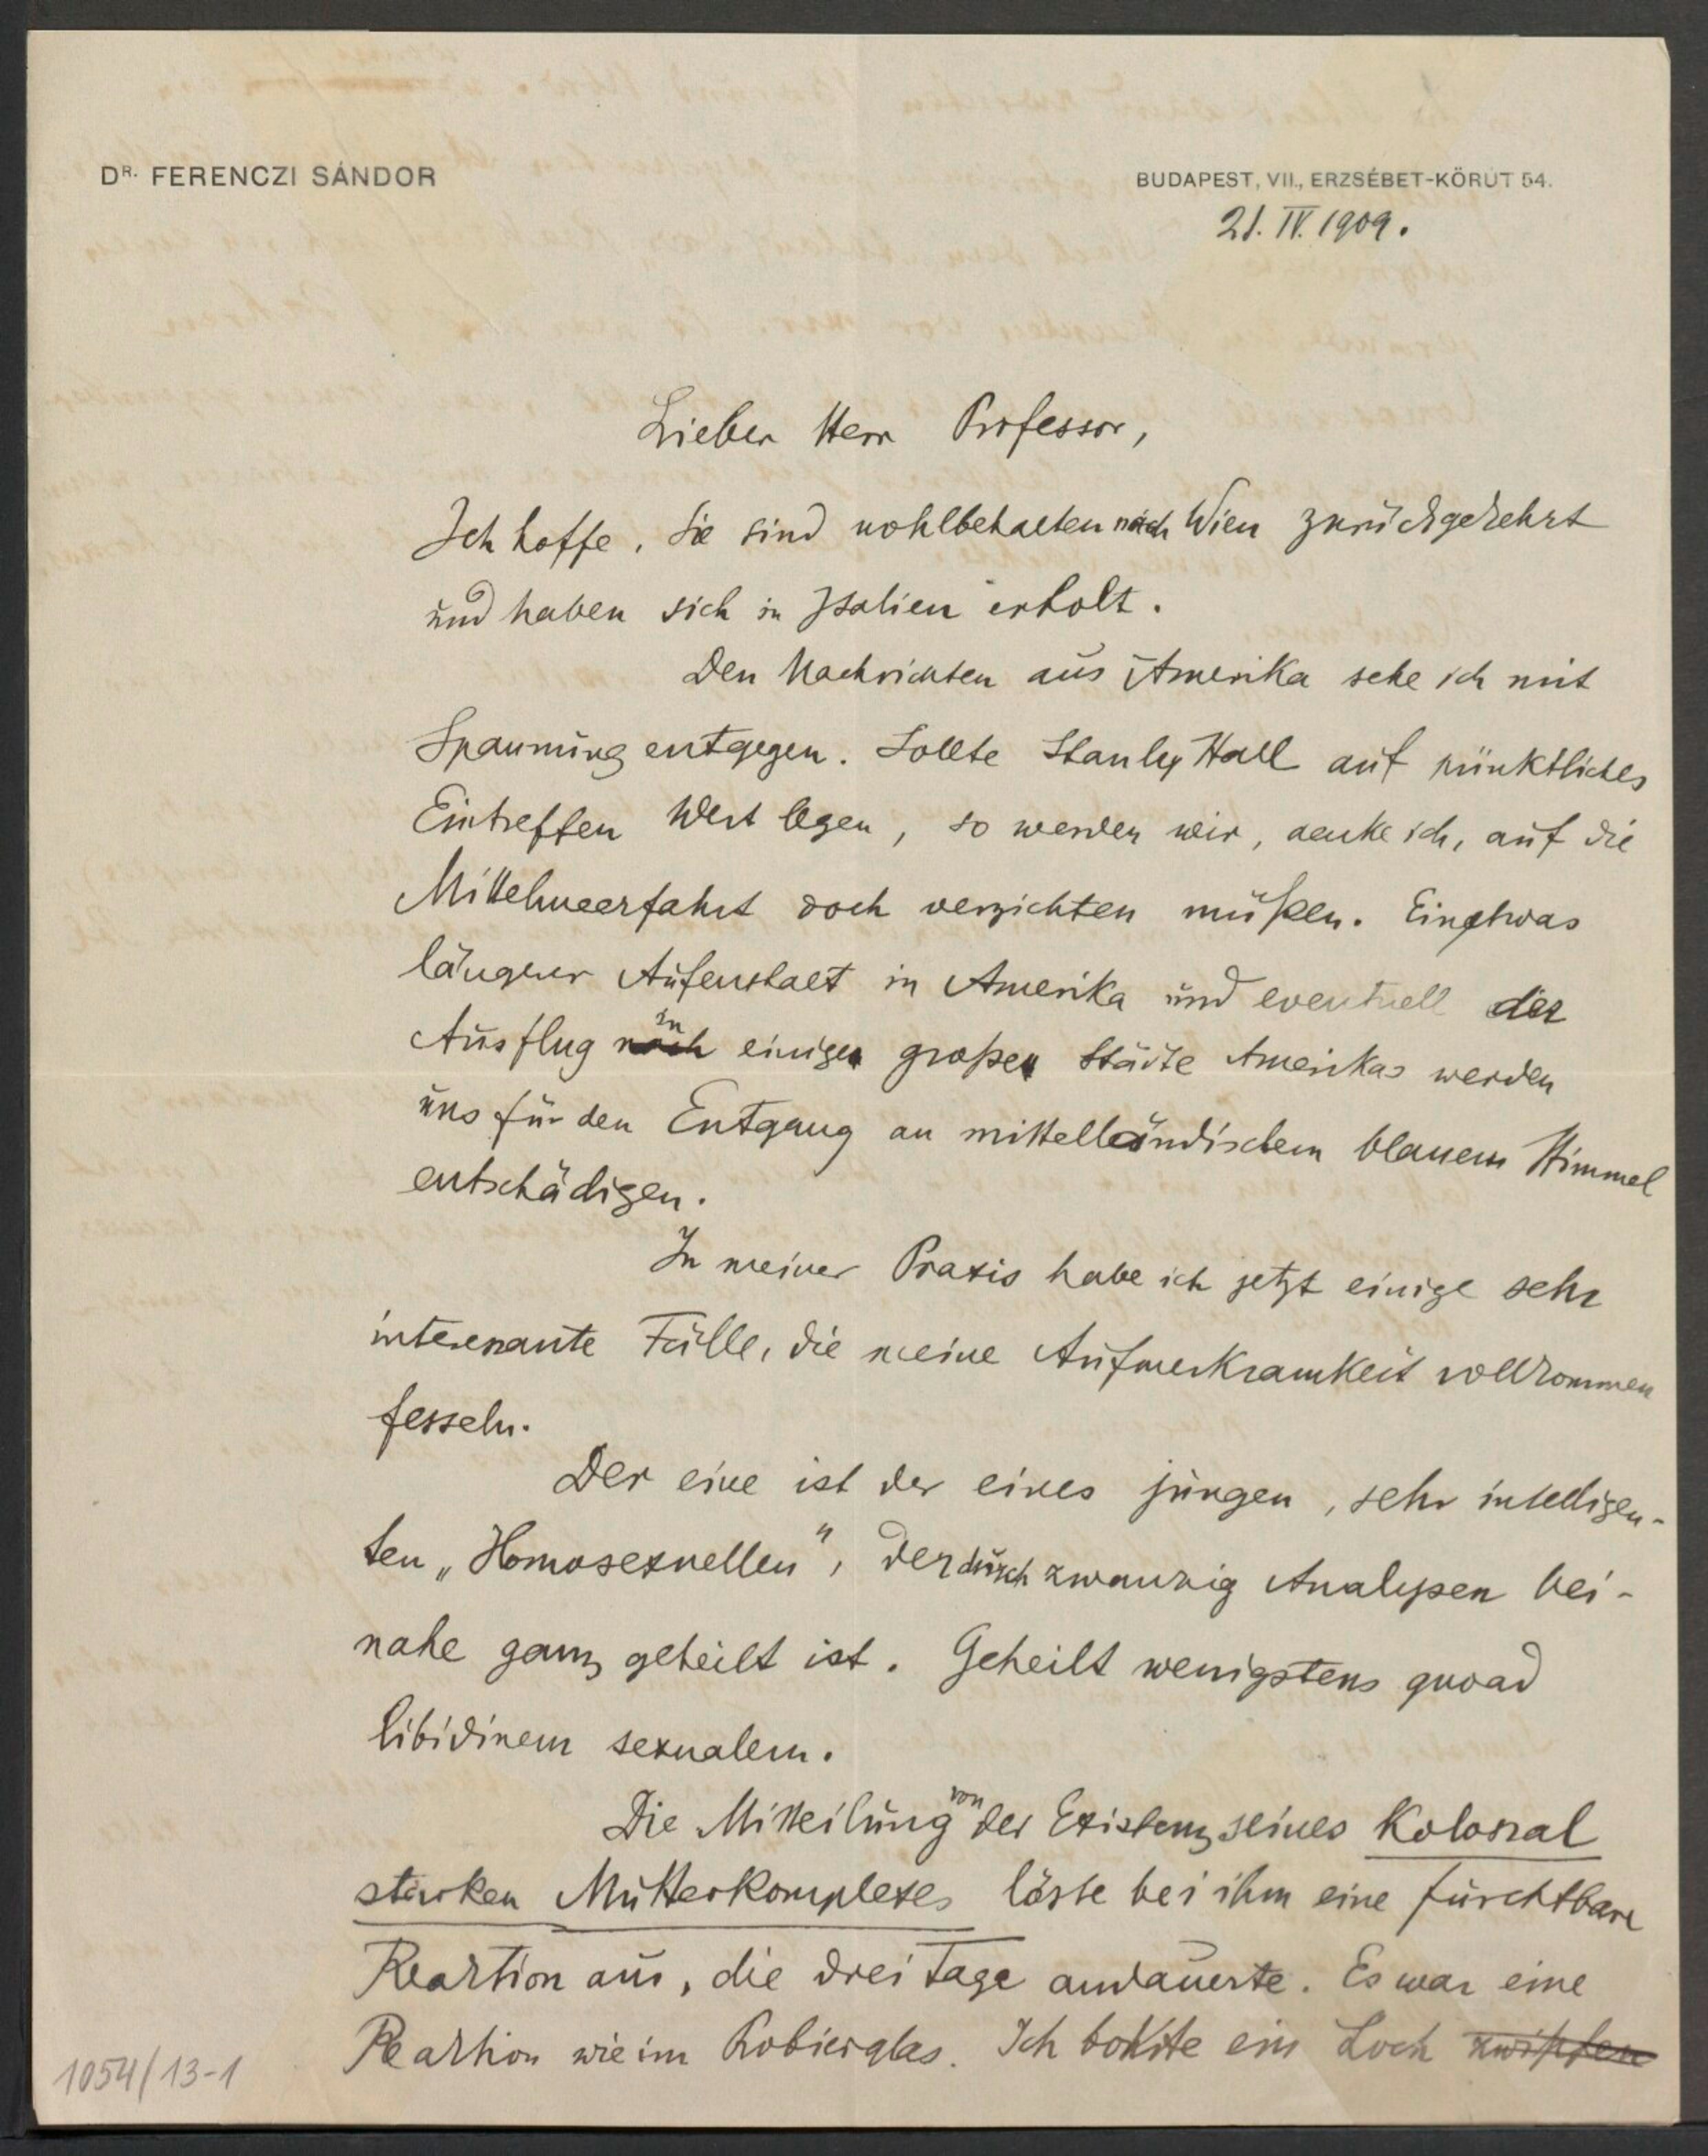 DR. FERENCZI SÁNDOR
BUDAPEST, VII., ERZSÉBET-KÖRÚT 54.
21. IV. 1909.
Lieber Herr Professor,
Ich hoffe, Sie sind wohlbehalten nach Wien zurückgekehrt
und haben sich in Italien erholt.
Den Nachrichten aus Amerika sehe ich mit
Spannung entgegen. Sollte Stanley Hall auf pünktliches
Eintreffen Wert legen, so werden wir, denke ich, auf die
Mittelmeerfahrt doch verzichten müßen. Ein etwas
längerer Aufenthalt in Amerika und eventuell der
Ausflug nach in einige große Städte Amerikas werden
uns für den Entgang an mittelländischem blauem Himmel
entschädigen.
In meiner Praxis habe ich jetzt einige sehr
interessante Fälle, die meine Aufmerksamkeit vollkommen
fesseln.
Der eine ist der eines jungen, sehr intelligen-
ten „Homosexuellen", der durch zwanzig Analysen bei-
nahe ganz geheilt ist. Geheilt wenigstens quoad
libidinem sexualem.
Die Mitteilung von der Existenz seines kolossal
starken Mutterkomplexes löste bei ihm eine furchtbare
Reaktion aus, die drei Tage andauerte. Es war eine
Reaktion wie im Probierglas. Ich bohrte ein Loch zwischen
1054/13-1